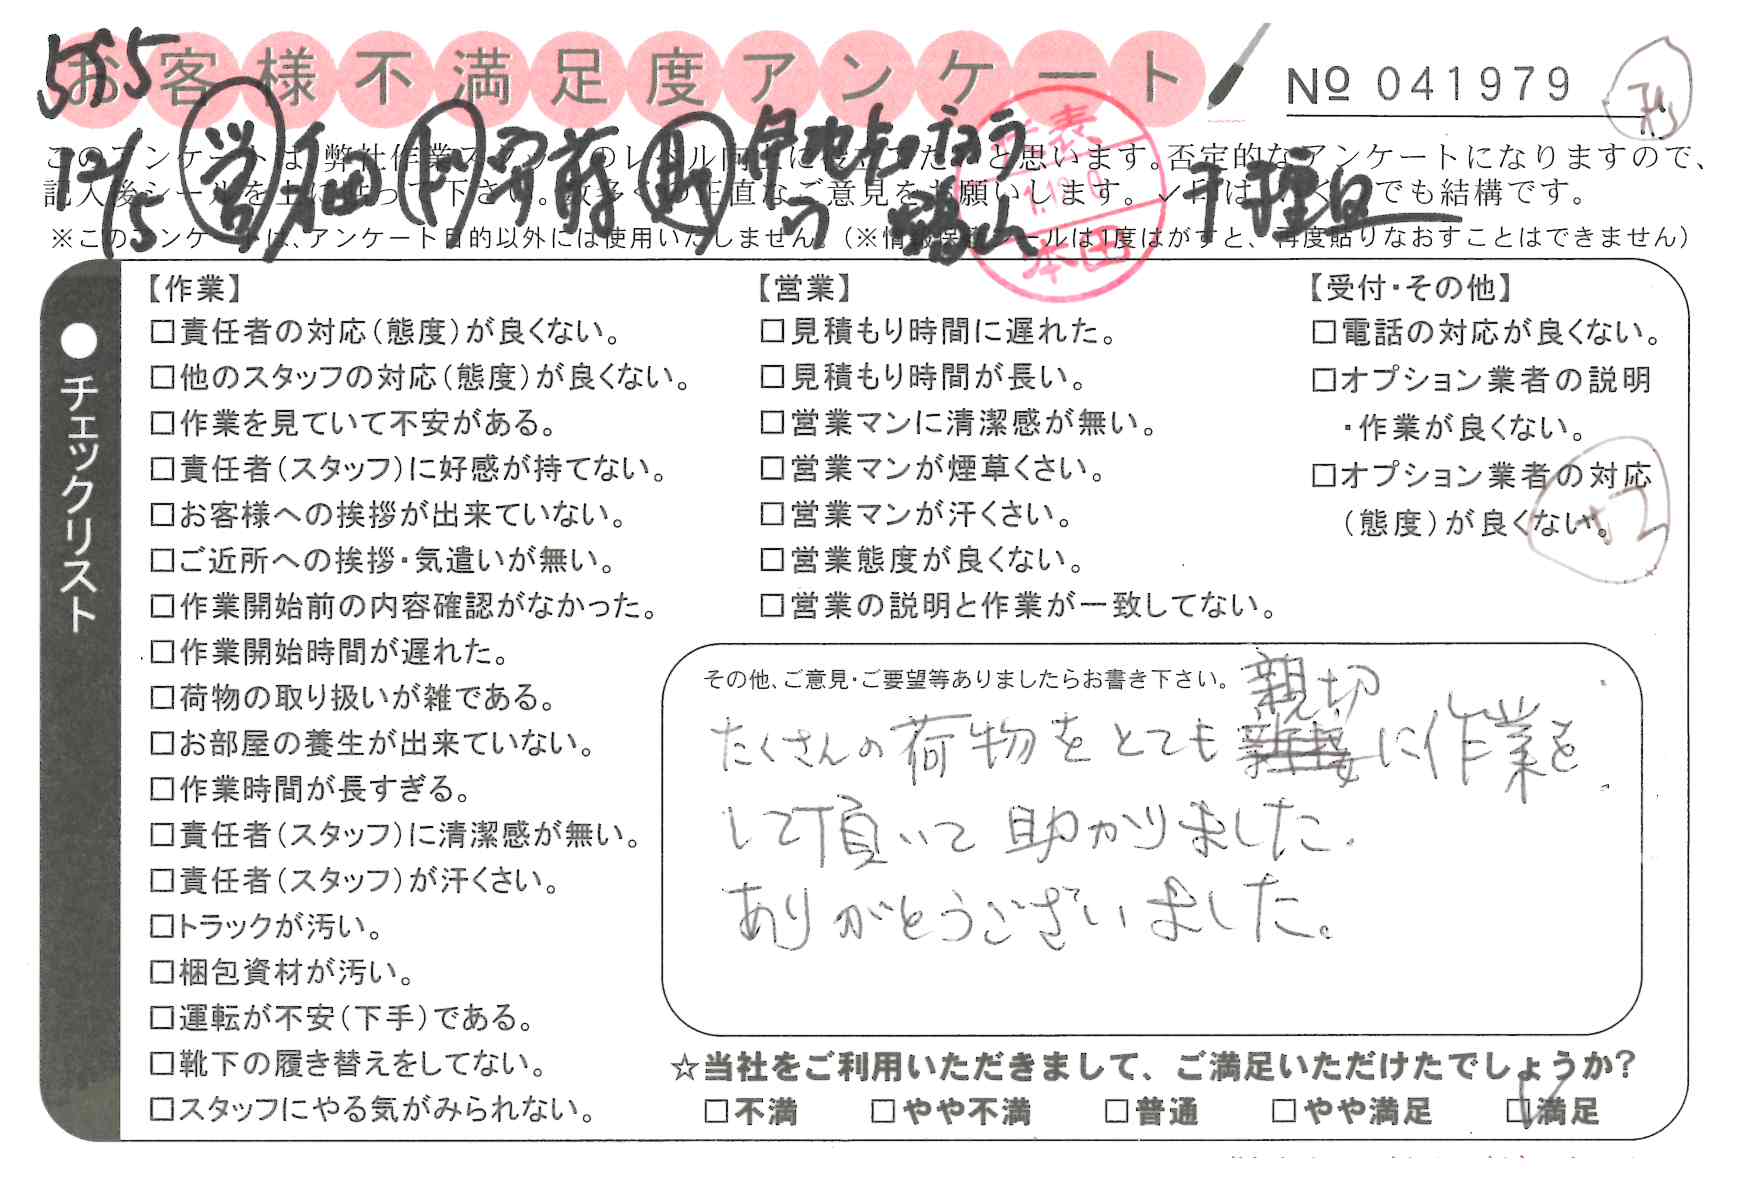 お客様不満足度アンケート
№ 041979
555
12/5
このアンケートは、弊社作業スタッフのレベル向上に役立てたいと思います。否定的なアンケートになりますので、
記入後シールを上に貼って下さい。数多くの正直なご意見をお願いします。✓印はいくつでも結構です。
※このアンケートは、アンケート目的以外には使用いたしません。(※情報保護シールは1度はがすと、再度貼りなおすことはできません)
本田
チェックリスト
【作業】
□責任者の対応(態度)が良くない。
□他のスタッフの対応(態度)が良くない。
□作業を見ていて不安がある。
□責任者(スタッフ)に好感が持てない。
□お客様への挨拶が出来ていない。
□ご近所への挨拶・気遣いが無い。
□作業開始前の内容確認がなかった。
□作業開始時間が遅れた。
□荷物の取り扱いが雑である。
□お部屋の養生が出来ていない。
□作業時間が長すぎる。
□責任者(スタッフ)に清潔感が無い。
□責任者(スタッフ)が汗くさい。
□トラックが汚い。
□梱包資材が汚い。
□運転が不安(下手)である。
□靴下の履き替えをしてない。
□スタッフにやる気がみられない。
【営業】
□見積もり時間に遅れた。
□見積もり時間が長い。
□営業マンに清潔感が無い。
□営業マンが煙草くさい。
□営業マンが汗くさい。
□営業態度が良くない。
□営業の説明と作業が一致してない。
【受付・その他】
□電話の対応が良くない。
□オプション業者の説明
・作業が良くない。
□オプション業者の対応
(態度)が良くない。
その他、ご意見・ご要望等ありましたらお書き下さい。
親切
たくさんの荷物をとても に作業を
して頂いて助かりました.
ありがとうございました。
☆当社をご利用いただきまして、ご満足いただけたでしょうか?
□不満 □やや不満 □普通 □やや満足 ☑満足